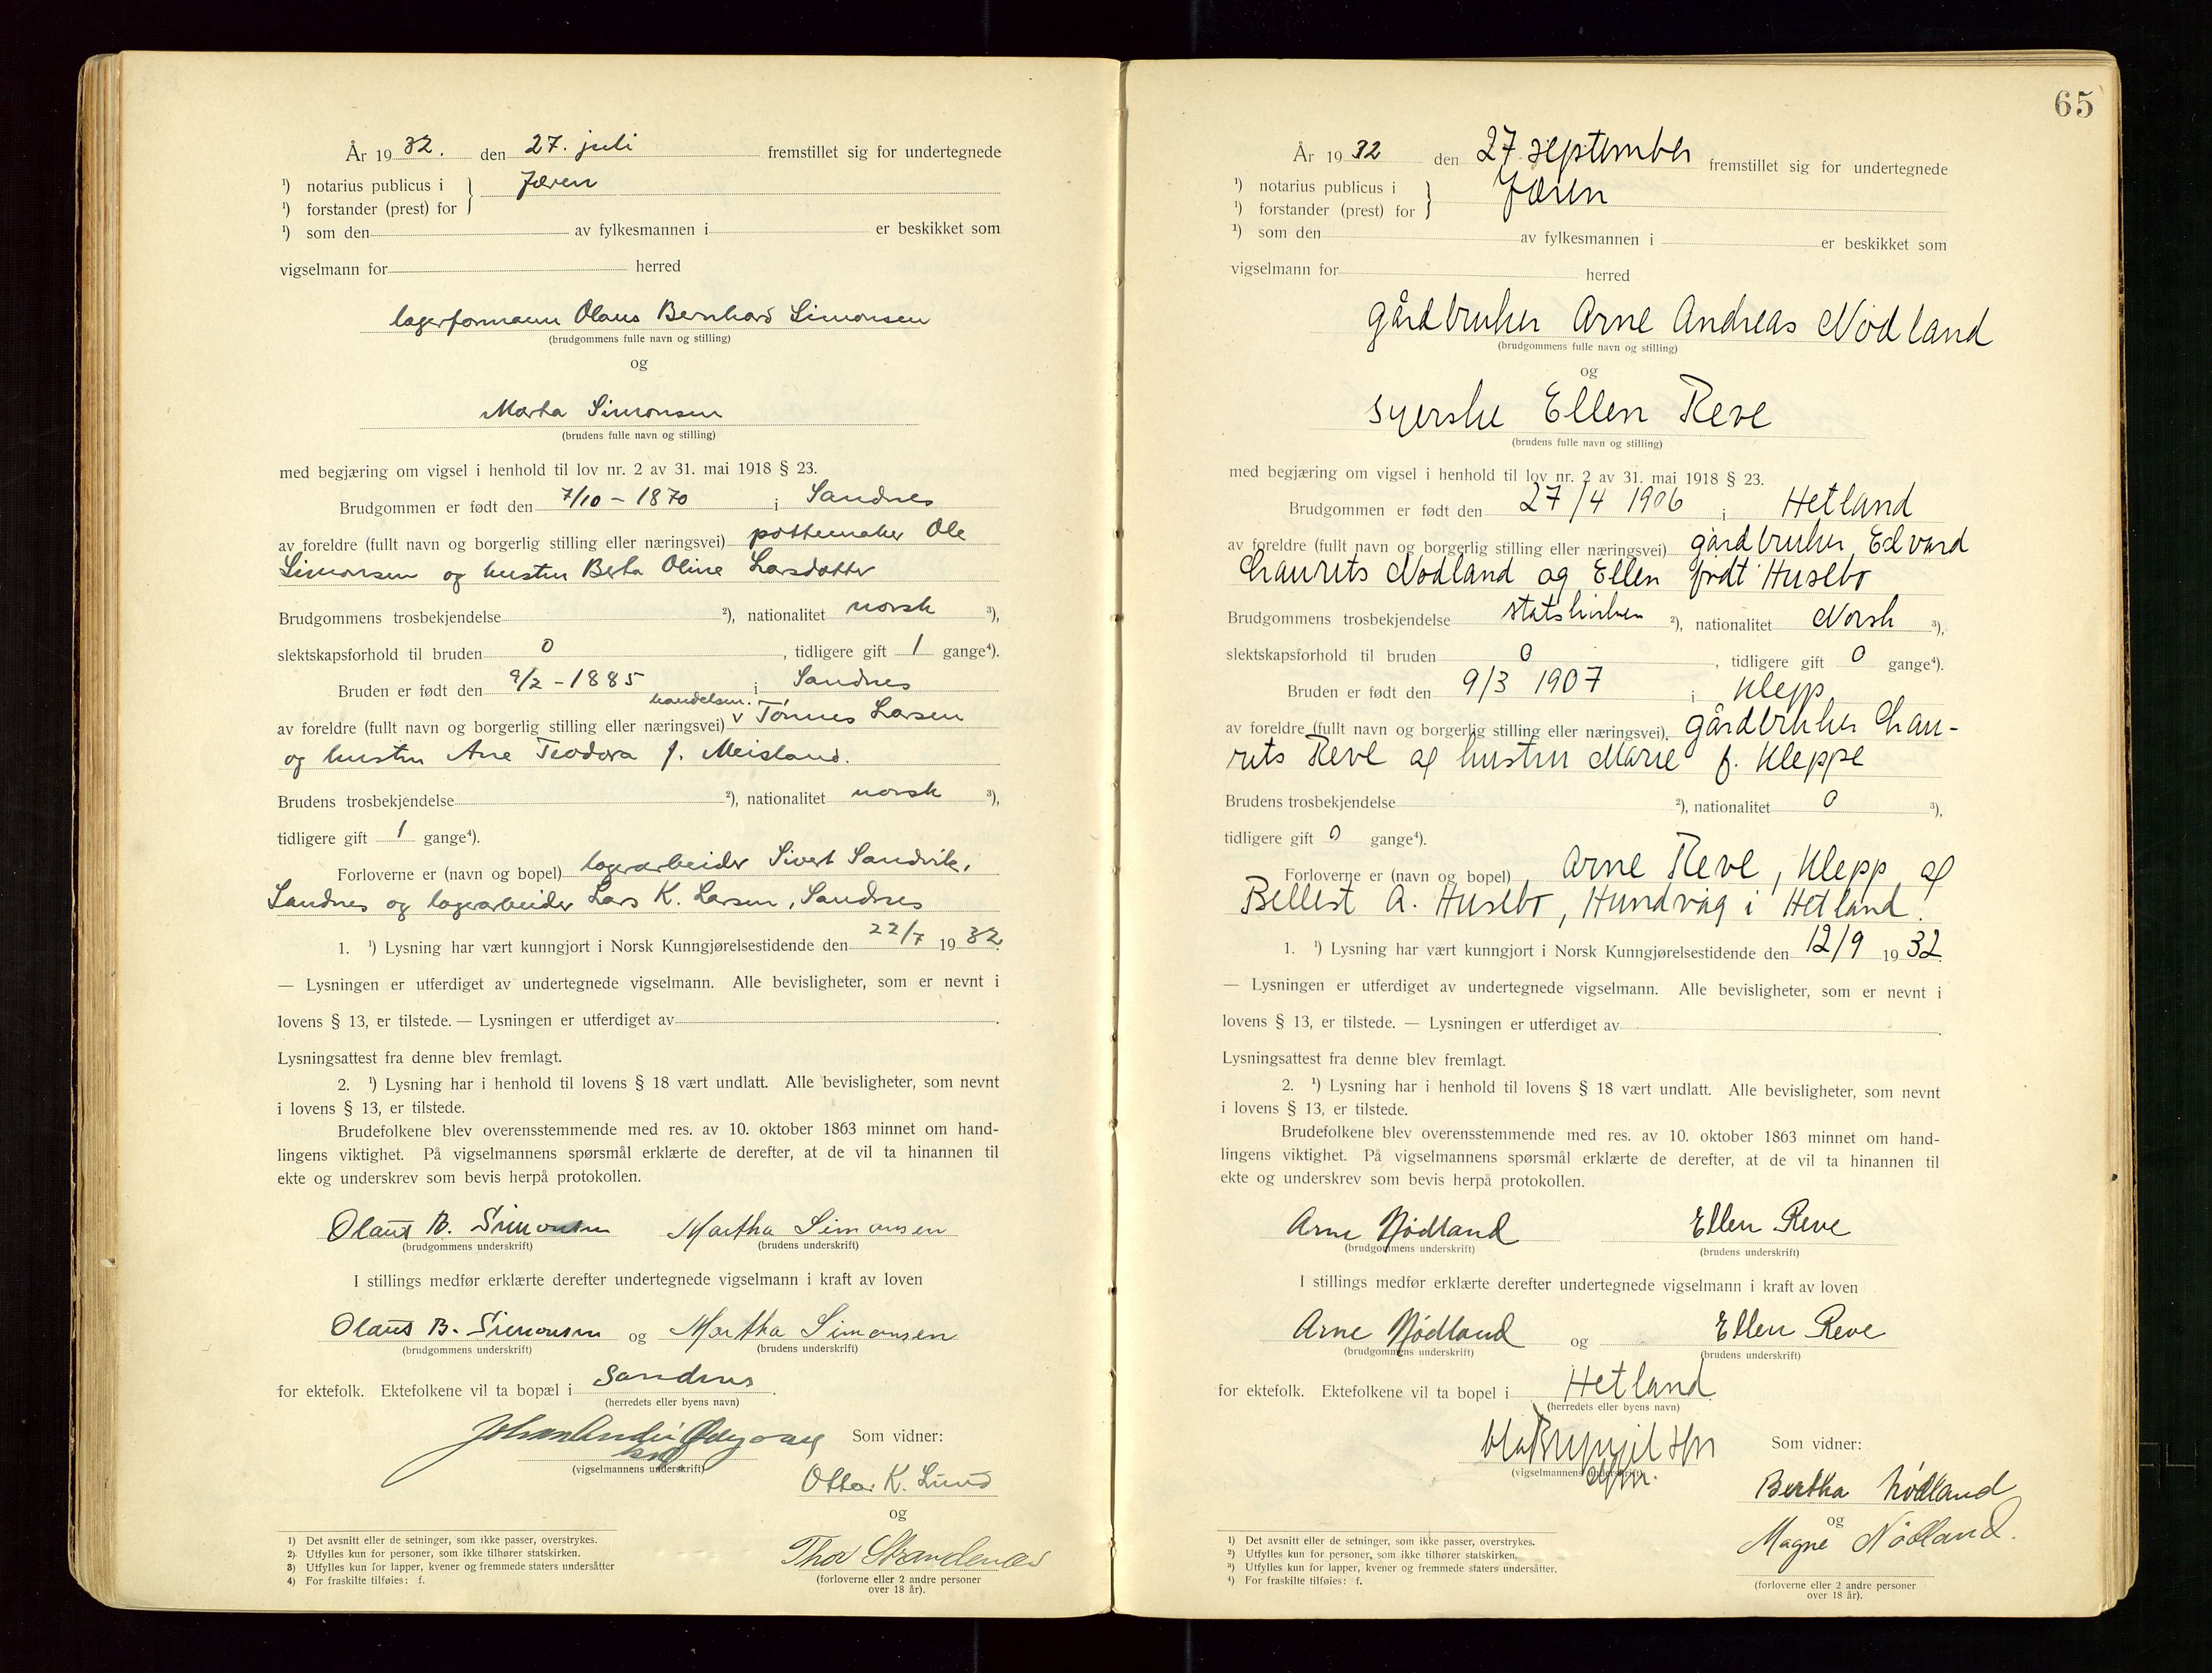 År 19 32. den 27. juli fremstillet sig for undertegnede
¹) notarius publicus i } Jæren
¹) forstander (prest) for
¹) som den av fylkesmannen i er beskikket som
vigselmann for herred
lagerformann Olaus Bernhard Simonsen
(brudgommens fulle navn og stilling)
og
Marta Simonsen
(brudens fulle navn og stilling)
med begjæring om vigsel i henhold til lov nr. 2 av 31. mai 1918 § 23.
Brudgommen er født den 7/10 - 1870 i Sandnes
av foreldre (fullt navn og borgerlig stilling eller næringsvei) pottemaker Ole
Simonsen og hustru Berta Oline Larsdatter
Brudgommens trosbekjendelse ²), nationalitet norsk ³),
slektskapsforhold til bruden 0, tidligere gift 1 gange⁴).
Bruden er født den 9/2 - 1885 i Sandnes
handelsm.
av foreldre (fullt navn og borgerlig stilling eller næringsvei) v Tønnes Larsen
og hustru Ane Teodora f. Meisland.
Brudens trosbekjendelse ²), nationalitet norsk ³),
tidligere gift 1 gange⁴).
Forloverne er (navn og bopel) lagerarbeider Sivert Sandvik,
Sandnes og lagerarbeider Lars K. Larsen, Sandnes
1. ¹) Lysning har vært kunngjort i Norsk Kunngjørelsestidende den 22/7 19 32.
— Lysningen er utferdiget av undertegnede vigselmann. Alle bevisligheter, som er nevnt i
lovens § 13, er tilstede. — Lysningen er utferdiget av .
Lysningsattest fra denne blev fremlagt.
2. ¹) Lysning har i henhold til lovens § 18 vært undlatt. Alle bevisligheter, som nevnt
i lovens § 13, er tilstede.
Brudefolkene blev overensstemmende med res. av 10. oktober 1863 minnet om hand-
lingens viktighet. På vigselmannens spørsmål erklærte de derefter, at de vil ta hinannen til
ekte og underskrev som bevis herpå protokollen.
Olaus B. Simonsen Martha Simonsen
(brudgommens underskrift) (brudens underskrift)
I stillings medfør erklærte derefter undertegnede vigselmann i kraft av loven
Olaus B. Simonsen og Martha Simonsen
(brudgommens underskrift) (brudens underskrift)
for ektefolk. Ektefolkene vil ta bopæl i Sandnes.
(herredets eller byens navn)
Som vidner:
(vigselmannens underskrift)
Ottar K. Lund
og
Thor Strandenæs
(forloverne eller 2 andre personer
over 18 år).
1) Det avsnitt eller de setninger, som ikke passer, overstrykes.
2) Utfylles kun for personer, som ikke tilhører statskirken.
3) Utfylles kun for lapper, kvener og fremmede staters undersåtter
4) For fraskilte tilføies: f.
65
År 19 32 den 27 september fremstillet sig for undertegnede
¹) notarius publicus i } Jæren
¹) forstander (prest) for
¹) som den av fylkesmannen i er beskikket som
vigselmann for herred
gårdbruker Arne Andreas Nødland
(brudgommens fulle navn og stilling)
og
syerske Ellen Reve
(brudens fulle navn og stilling)
med begjæring om vigsel i henhold til lov nr. 2 av 31. mai 1918 § 23.
Brudgommen er født den 27/4 1906 i Hetland
av foreldre (fullt navn og borgerlig stilling eller næringsvei) gårdbruker Edvard
Laurits Nødland og Ellen født Husebø
Brudgommens trosbekjendelse statskirken ²), nationalitet Norsk ³),
slektskapsforhold til bruden 0, tidligere gift 0 gange⁴).
Bruden er født den 9/3 1907 i Klepp
av foreldre (fullt navn og borgerlig stilling eller næringsvei), gårdbruker Lau-
rits Reve og hustru Marie f. Kleppe
Brudens trosbekjendelse ²), nationalitet 0 ³),
tidligere gift 0 gange⁴).
Forloverne er (navn og bopel) Arne Reve, Klepp og
Bellest A. Husebø, Hundvåg i Hetland.
1. ¹) Lysning har vært kunngjort i Norsk Kunngjørelsestidende den 12/9 19 32.
— Lysningen er utferdiget av undertegnede vigselmann. Alle bevisligheter, som er nevnt i
lovens § 13, er tilstede. — Lysningen er utferdiget av .
Lysningsattest fra denne blev fremlagt.
2. ¹) Lysning har i henhold til lovens § 18 vært undlatt. Alle bevisligheter, som nevnt
i lovens § 13, er tilstede.
Brudefolkene blev overensstemmende med res. av 10. oktober 1863 minnet om hand-
lingens viktighet. På vigselmannens spørsmål erklærte de derefter, at de vil ta hinannen til
ekte og underskrev som bevis herpå protokollen.
Arne Nødland Ellen Reve
(brudgommens underskrift) (brudens underskrift)
I stillings medfør erklærte derefter undertegnede vigselmann i kraft av loven
Arne Nødland og Ellen Reve
(brudgommens underskrift) (brudens underskrift)
for ektefolk. Ektefolkene vil ta bopel i Hetland.
(herredets eller byens navn)
Som vidner:
(vigselmannens underskrift)
Bertha Nødland
og
Magne Nødland.
(forloverne eller 2 andre personer
over 18 år).
¹) Det avsnitt eller de setninger, som ikke passer, overstrykes.
²) Utfylles kun for personer, som ikke tilhører statskirken.
³) Utfylles kun for lapper, kvener og fremmede staters undersåtter.
⁴) For fraskilte tilføies: f.